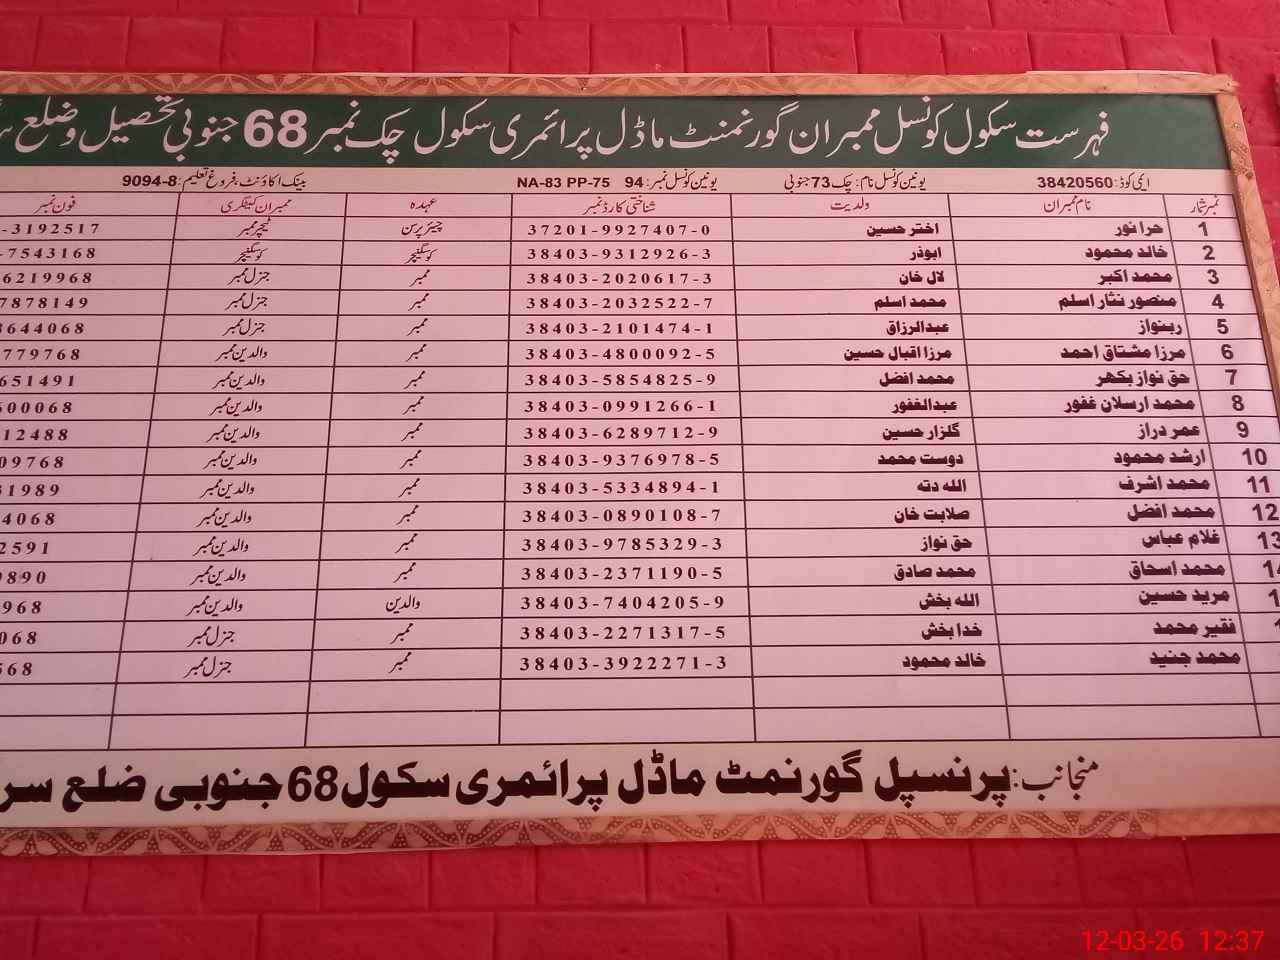 فہرست سکول کونسل ممبران گورنمنٹ ماڈل پرائمری سکول چک نمبر 68 جنوبی تحصیل و ضلع
ایمی کوڈ: 38420560 یونین کونسل نام: چک 73 جنوبی یونین کونسل نمبر: 94 NA-83 PP-75 بینک اکاؤنٹ، فروغ تعلیم: 9094-8
نمبر شمار نام ممبران ولدیت شناختی کارڈ نمبر عہدہ ممبران کیٹگری فون نمبر
1 حرا نور اختر حسین 37201-9927407-0 چیئر پرسن ٹیچر ممبر -3192517
2 خالد محمود ابوذر 38403-9312926-3 کوسگنیچر کوسگنیچر -7543168
3 محمد اکبر لال خان 38403-2020617-3 ممبر جنرل ممبر 6219968
4 منصور نثار اسلم محمد اسلم 38403-2032522-7 ممبر جنرل ممبر 7878149
5 ربنواز عبدالرزاق 38403-2101474-1 ممبر جنرل ممبر 3644068
6 مرزا مشتاق احمد مرزا اقبال حسین 38403-4800092-5 ممبر والدین ممبر 779768
7 حق نواز بکھر محمد افضل 38403-5854825-9 ممبر والدین ممبر 651491
8 محمد ارسلان غفور عبدالغفور 38403-0991266-1 ممبر والدین ممبر 600068
9 عمر دراز گلزار حسین 38403-6289712-9 ممبر والدین ممبر 12488
10 ارشد محمود دوست محمد 38403-9376978-5 ممبر والدین ممبر 09768
11 محمد اشرف اللہ دتہ 38403-5334894-1 ممبر والدین ممبر 31989
12 محمد افضل صلابت خان 38403-0890108-7 ممبر والدین ممبر 4068
13 غلام عباس حق نواز 38403-9785329-3 ممبر والدین ممبر 2591
محمد اسحاق محمد صادق 38403-2371190-5 ممبر والدین ممبر 9890
مرید حسین اللہ بخش 38403-7404205-9 والدین والدین ممبر 968
فقیر محمد خدا بخش 38403-2271317-5 ممبر جنرل ممبر 068
محمد جنید خالد محمود 38403-3922271-3 ممبر جنرل ممبر 568
منجانب: پرنسپل گورنمٹ ماڈل پرائمری سکول 68 جنوبی ضلع سر
12-03-26 12:37